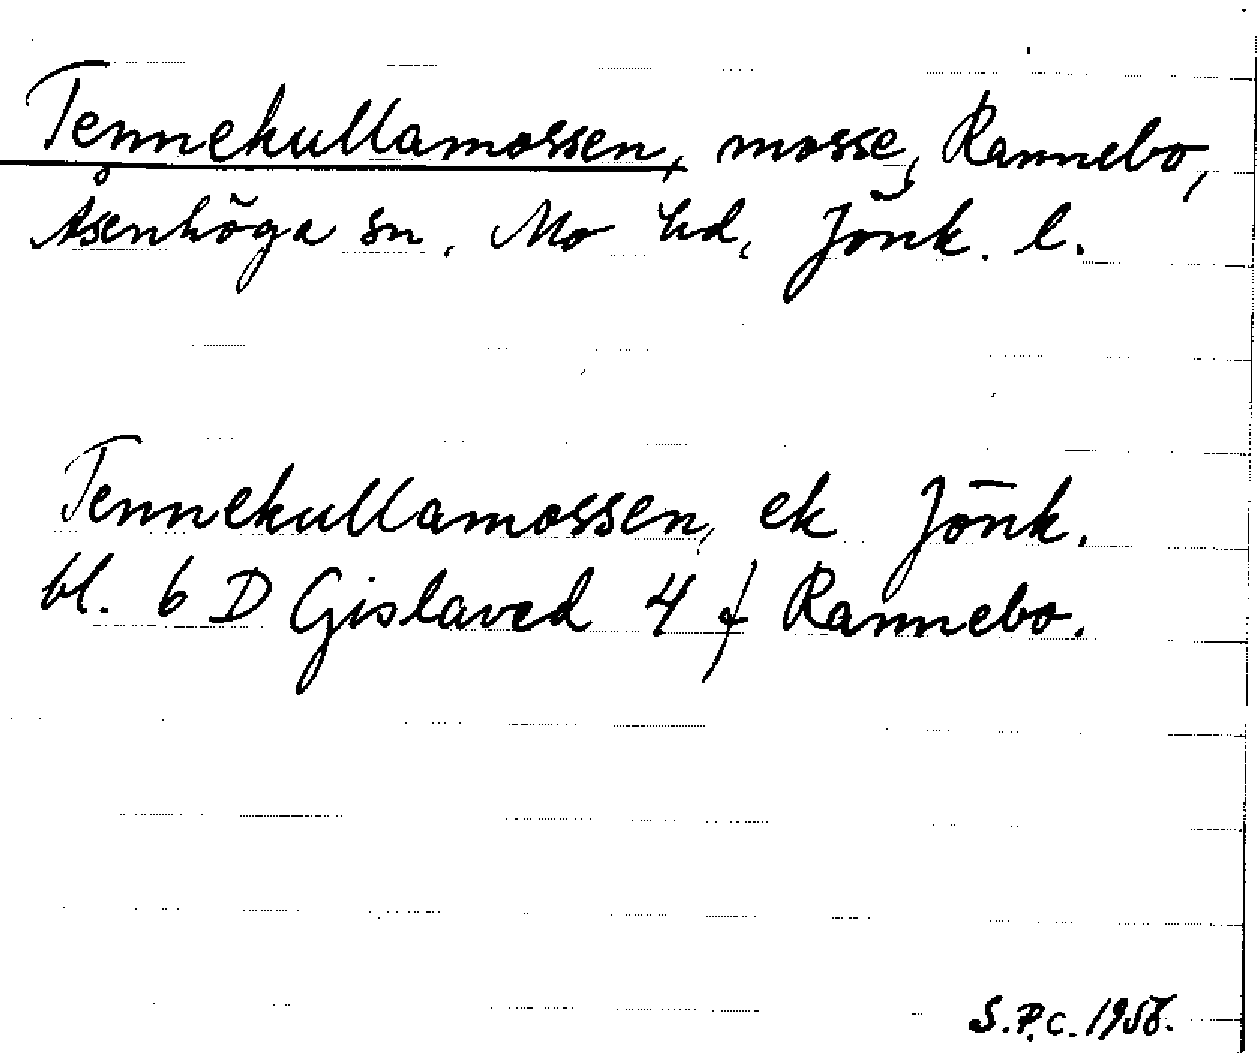 Tennekullamossen, mosse, Rannebo,
Åsenhöga sn, Mo hd, Jönk. l.
Tennekullamossen, ek Jönk.
bl. 6 D Gislaved 4 f Rannebo.
S.P.C. 1958.